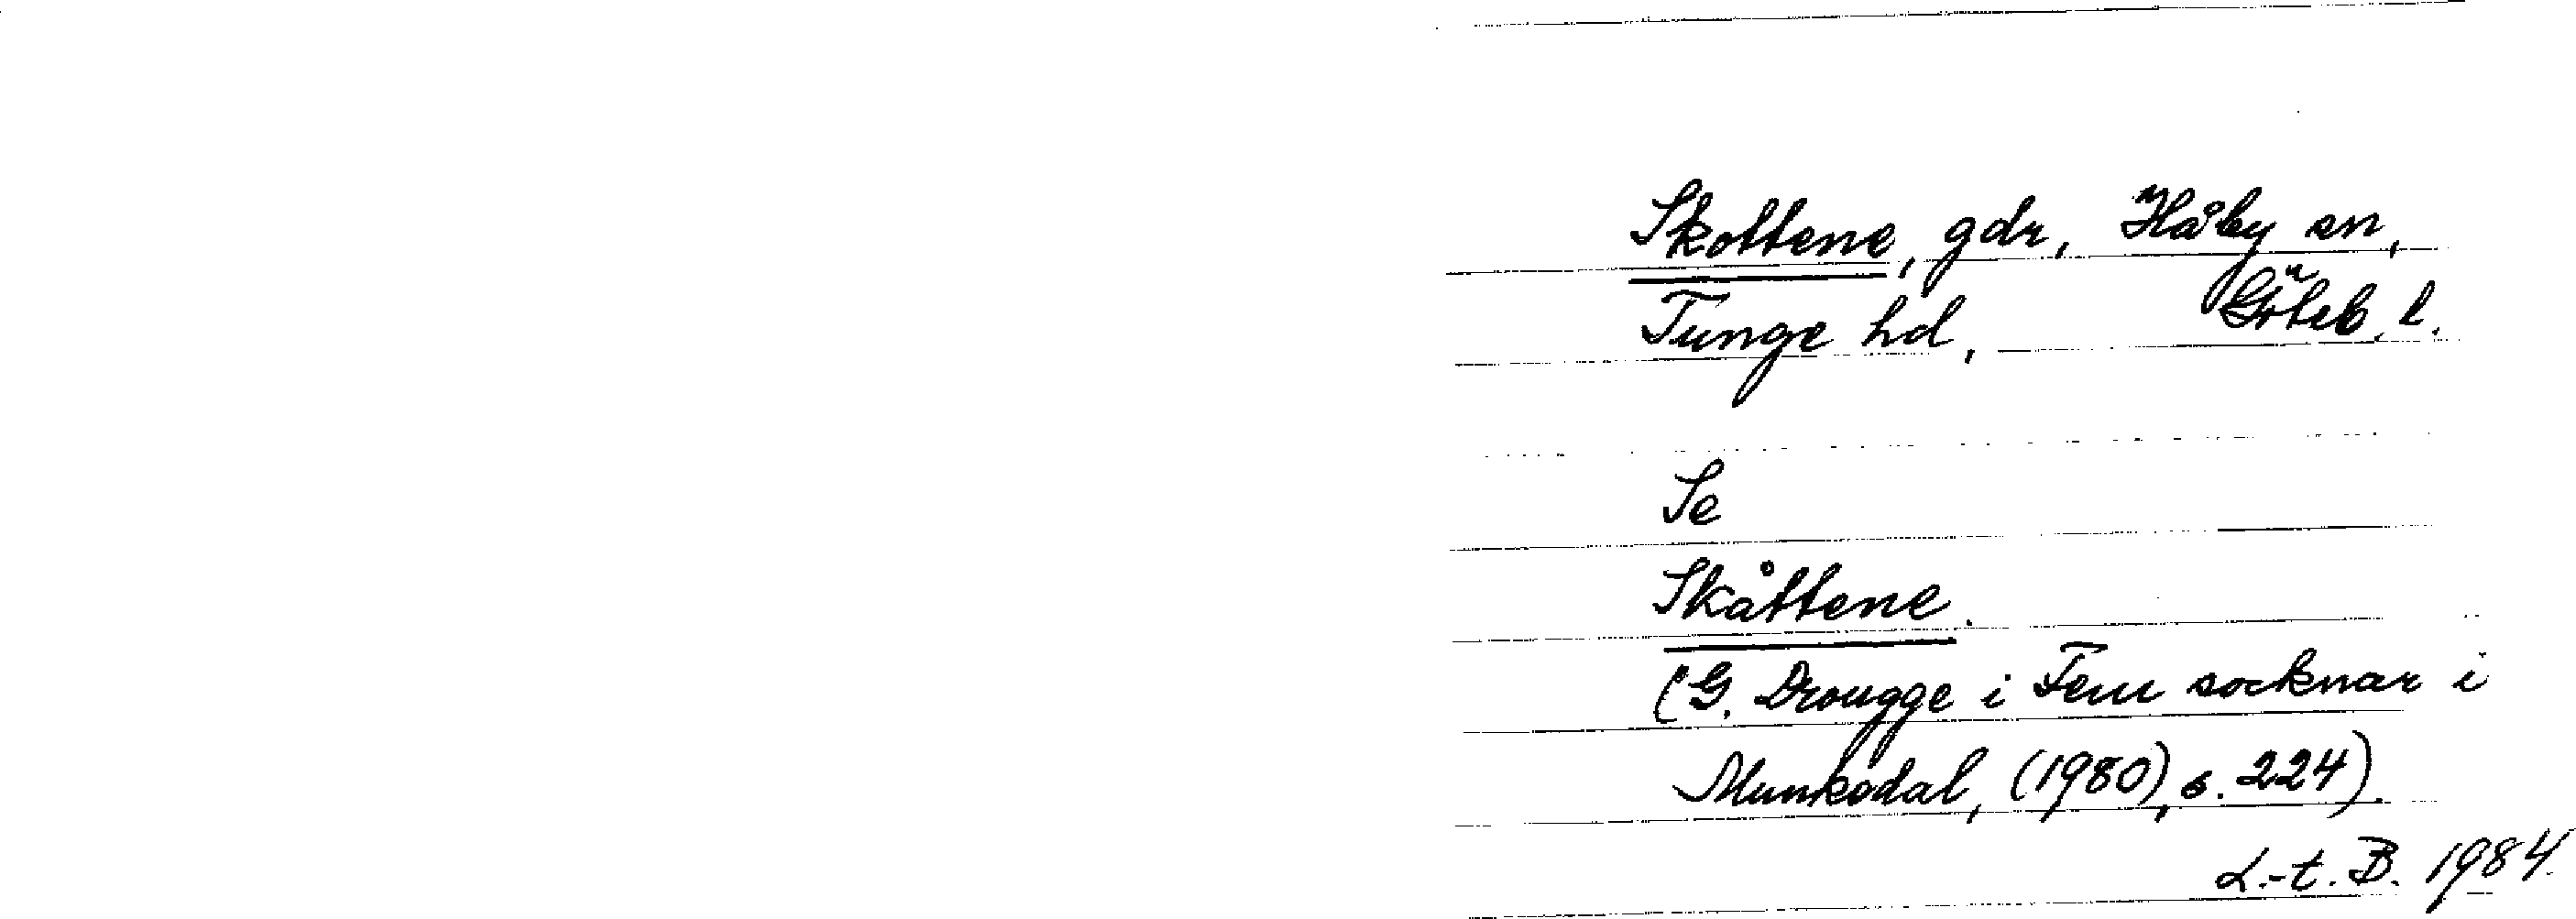 Skottene, gdr, Håby sn,
Tunge hd, Göteb. l.
Se
Skåttene.
(G. Drougge i Fem socknar i
Munkedal, (1980), s. 224).
L.-t. B. 1984.